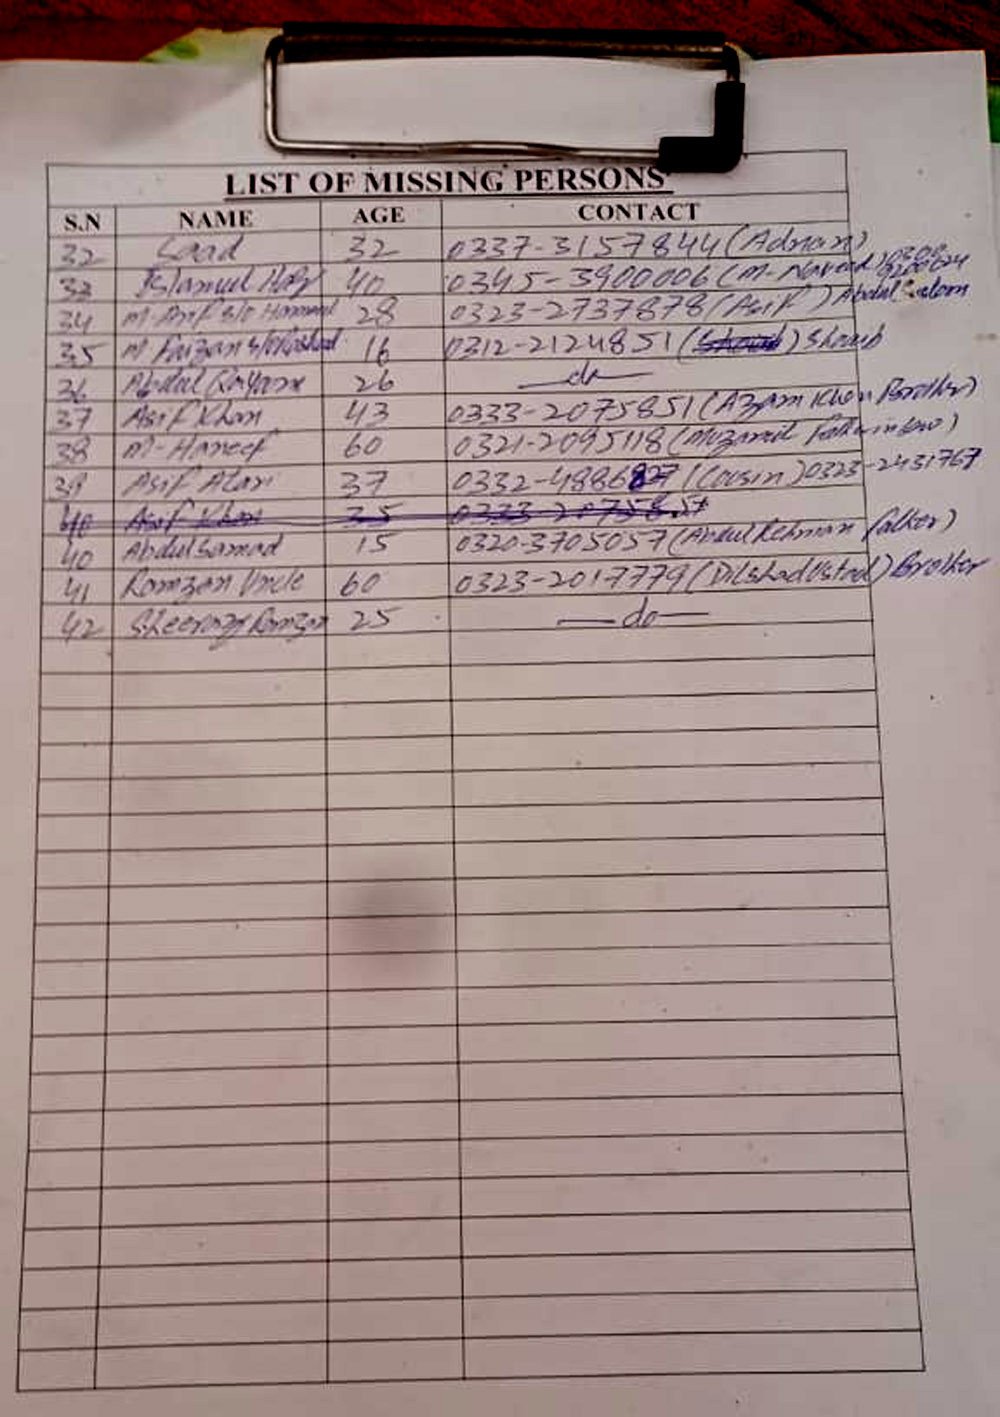 LIST OF MISSING PERSONS
S.N NAME AGE CONTACT
32 Saad 32 0337-3157844 (Adnan)
33 40 0345-3900006 (M. Naveed)
34 M Arif S/o 28 0323-2737878 (Asif) Abdul Salam
35 M Faizan S/o 16 0312-2124851 Shoaib
36 Abdul 26 do
37 Asif Khan 43 0333-2075851 (Azam Khan Brother)
38 M. Haneef 60 0321-2095118
39 Asif Atari 37 0332-4886827 (Cousin) 0323-2431767
40 Asif Khan 35
40 Abdul Samad 15 0320-3705057 (Abdul Rehman father)
41 Ramzan Uncle 60 0323-2017779 (Dilshad Ustad) Brother
42 25 do